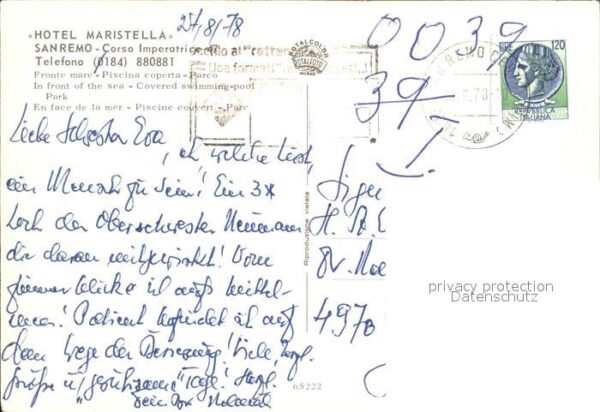 27/8/78
«HOTEL MARISTELLA»
SANREMO - Corso Imperatrice
Telefono (0184) 880881
Fronte mare - Piscina coperta - Parco
In front of the sea - Covered swimming-pool
Park
En face de la mer - Piscine couvert - Parc
0039
39
LIRE 120
REPUBBLICA
ITALIANA
TOTALCOLOR
Liebe Schwester Eva,
ich, welche Lust,
ein Mensch zu sein! Ein 3x
hoch der Oberschwester
die daran mitgewirkt! Vom
Zimmer blicke ich aufs Mittel-
meer! Patient befindet sich auf
dem Wege der Besserung! Viele, herzl.
Grüße u. geruhsame "Tage"! Herzl.
Riproduzione vietata
65222
H. St.
497
privacy protection
Datenschutz